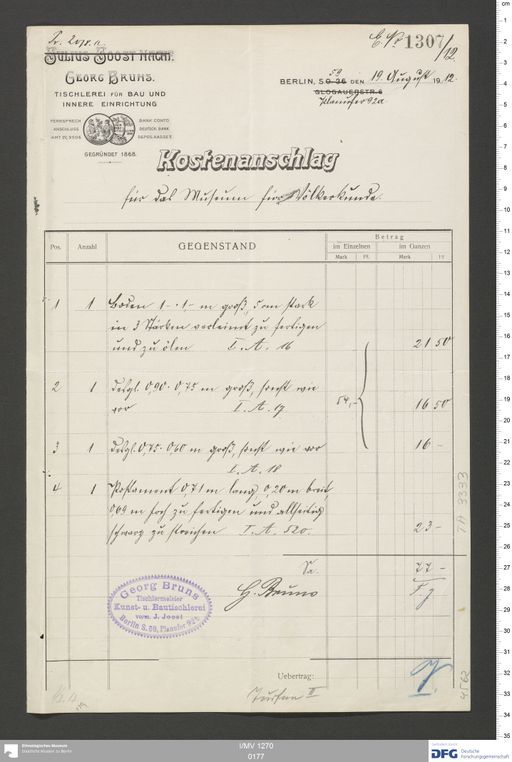 E. № 1307/12.
JULIUS JOOST NACHF.
GEORG BRUNS.
TISCHLEREI FÜR BAU UND
INNERE EINRICHTUNG
FERNSPRECH
ANSCHLUSS
BANK CONTO
DEUTSCHE BANK
DEPOS. KASSE T.
GEGRÜNDET 1868.
BERLIN, S.O. 36 DEN 19 August 1912.
GLOGAUERSTR. 6
Planufer 92a
Kostenanschlag
für das Museum für Völkerkunde.
Pos. Anzahl GEGENSTAND Betrag
im Einzelnen im Ganzen
Mark Pf. Mark Pf.
1 1 Boden 1,- · 1,- m groß, 5 cm stark
in 3 Stärken verleimt zu fertigen
und zu ölen I. A. 16 21 50
2 1 desgl. 0,90 · 0,75 m groß, sonst wie
vor I. A. 17 54,- 16 50
3 1 desgl. 0,75 · 0,60 m groß, sonst wie vor
I. A. 18 16 -
4 1 Postament 0,71 m lang 0,20 m breit
0,69 m hoch zu fertigen und allseitig
schwarz zu streichen I. A. 520. 23 -
Sa. 77 -
G. Bruns
Georg Bruns
Tischlermeister
Kunst- u. Bautischlerei
vorm. J. Joost
Berlin S. 59, Planufer 92a
Uebertrag:
Turfan II
IA 3333
Ethnologisches Museum
Staatliche Museen zu Berlin
I/MV 1270
0177
DFG Deutsche
Forschungsgemeinschaft